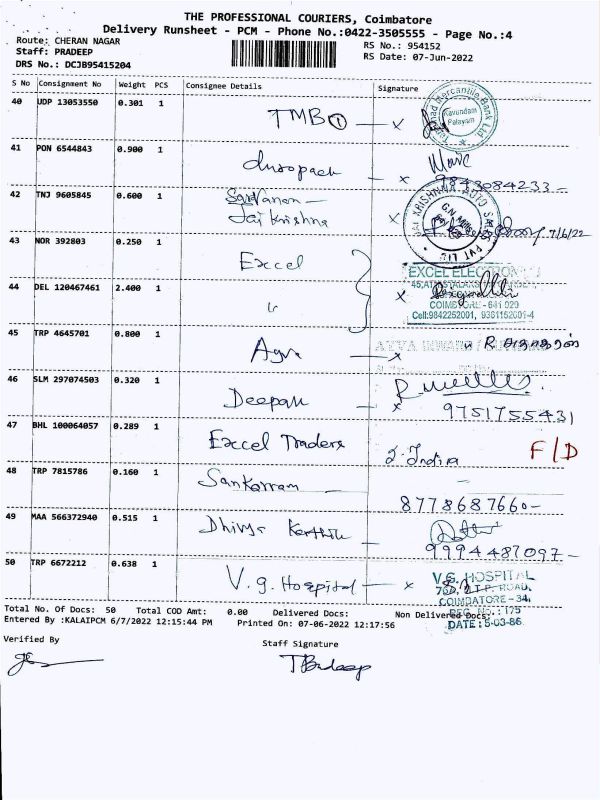 THE PROFESSIONAL COURIERS, Coimbatore
Delivery Runsheet - PCM - Phone No.:0422-3505555 - Page No.:4
Route: CHERAN NAGAR
Staff: PRADEEP
DRS No.: DCJB95415204
RS No.: 954152
RS Date: 07-Jun-2022
S No Consignment No Weight PCS Consignee Details Signature
40 UDP 13053550 0.301 1 TMB 1 x
Mercantile Bank Ltd
Kavundam
Palayam
41 PON 6544843 0.900 1 x
9843084233
42 TNJ 9605845 0.600 1 Saravanan
Jai Krishna x 7/6/22
JAI KRISHNA AUTO SALES PVT LTD
43 NOR 392803 0.250 1 Excel
44 DEL 120467461 2.400 1 " x
EXCEL ELECTRON
COIMBTORE - 641 029
Cell:9842252001, 9361152001-4
45 TRP 4645701 0.800 1 x
46 SLM 297074503 0.320 1 Deepak x
9751755431
47 BHL 100064057 0.289 1 Excel Traders Indira F/D
48 TRP 7815786 0.160 1 Sankarram
8778687660
49 MAA 566372940 0.515 1 Dhivya Karthik
9994487097
50 TRP 6672212 0.638 1 V.G. Hospital x
V.G. HOSPITAL
T.P. ROAD,
COIMBATORE - 34.
REG. NO.: 175
DATE: 5-03-86
Total No. Of Docs: 50 Total COD Amt: 0.00 Delivered Docs: Non Delivered Docs:
Entered By :KALAIPCM 6/7/2022 12:15:44 PM Printed On: 07-06-2022 12:17:56
Verified By
Staff Signature